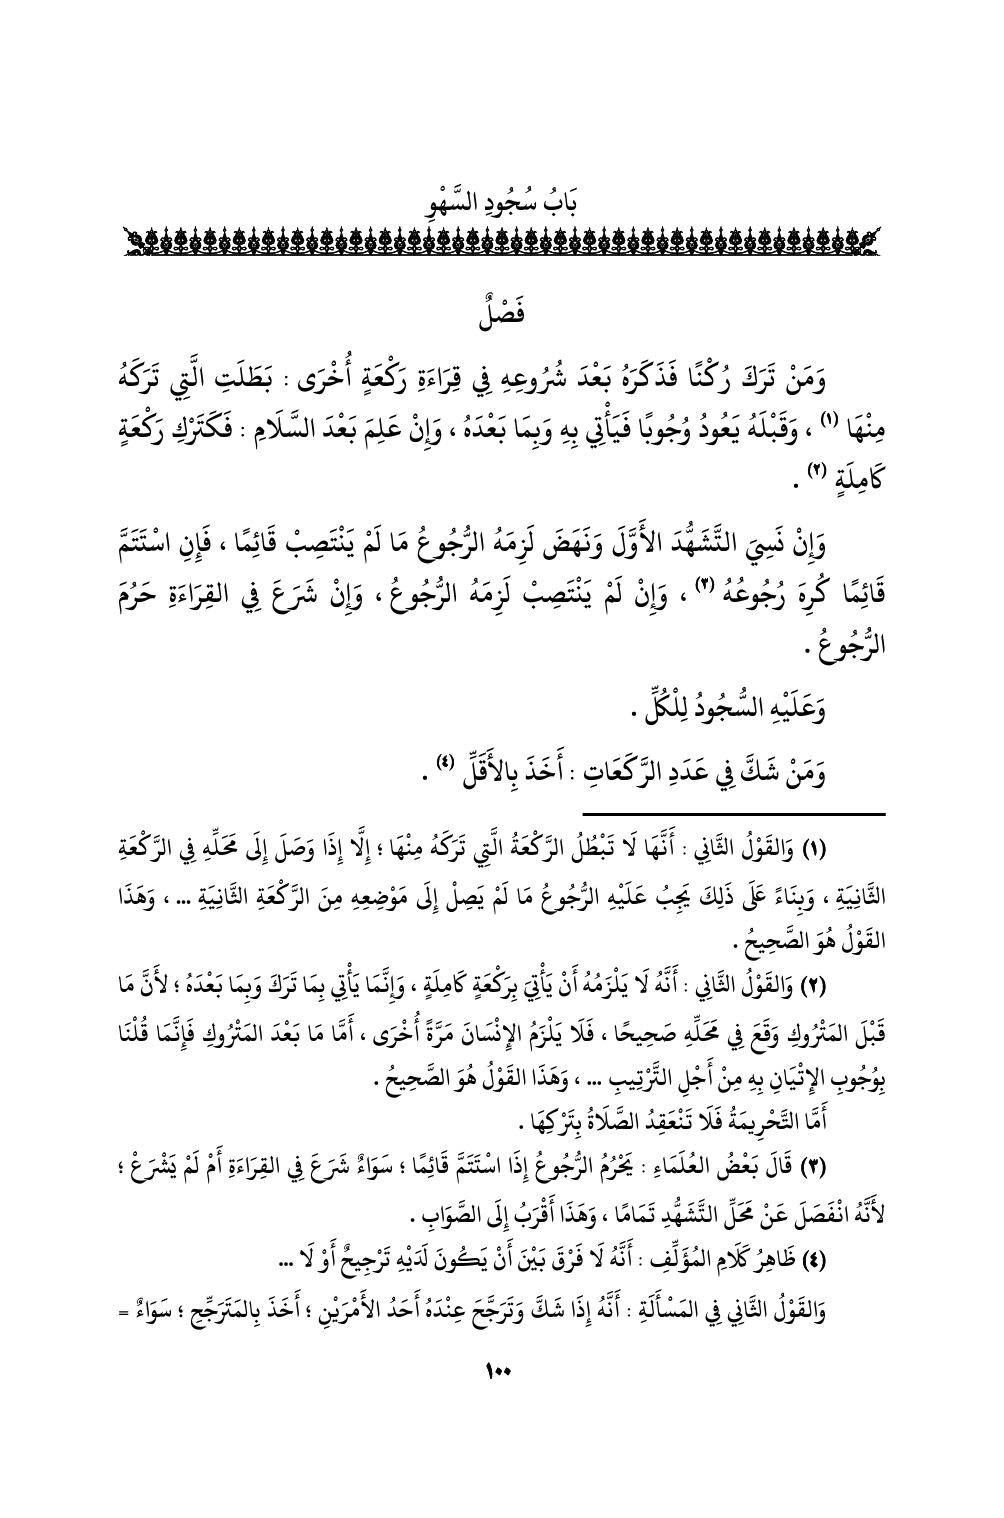 بَابُ سُجُودِ السَّهْوِ
فَصْلٌ
وَمَنْ تَرَكَ رُكْنًا فَذَكَرَهُ بَعْدَ شُرُوعِهِ فِي قِرَاءَةِ رَكْعَةٍ أُخْرَى : بَطَلَتِ الَّتِي تَرَكَهُ
مِنْهَا (١) ، وَقَبْلَهُ يَعُودُ وُجُوبًا فَيَأْتِي بِهِ وَبِمَا بَعْدَهُ ، وَإِنْ عَلِمَ بَعْدَ السَّلَامِ : فَكَتَرْكِ رَكْعَةٍ
كَامِلَةٍ (٢) .
وَإِنْ نَسِيَ التَّشَهُّدَ الأَوَّلَ وَنَهَضَ لَزِمَهُ الرُّجُوعُ مَا لَمْ يَنْتَصِبْ قَائِمًا ، فَإِنِ اسْتَتَمَّ
قَائِمًا كُرِهَ رُجُوعُهُ (٣) ، وَإِنْ لَمْ يَنْتَصِبْ لَزِمَهُ الرُّجُوعُ ، وَإِنْ شَرَعَ فِي القِرَاءَةِ حَرُمَ
الرُّجُوعُ .
وَعَلَيْهِ السُّجُودُ لِلْكُلِّ .
وَمَنْ شَكَّ فِي عَدَدِ الرَّكَعَاتِ : أَخَذَ بِالأَقَلِّ (٤) .
(١) وَالقَوْلُ الثَّانِي : أَنَّهَا لَا تَبْطُلُ الرَّكْعَةُ الَّتِي تَرَكَهُ مِنْهَا ؛ إِلَّا إِذَا وَصَلَ إِلَى مَحَلِّهِ فِي الرَّكْعَةِ
الثَّانِيَةِ ، وَبِنَاءً عَلَى ذَلِكَ يَجِبُ عَلَيْهِ الرُّجُوعُ مَا لَمْ يَصِلْ إِلَى مَوْضِعِهِ مِنَ الرَّكْعَةِ الثَّانِيَةِ ... ، وَهَذَا
القَوْلُ هُوَ الصَّحِيحُ .
(٢) وَالقَوْلُ الثَّانِي : أَنَّهُ لَا يَلْزَمُهُ أَنْ يَأْتِيَ بِرَكْعَةٍ كَامِلَةٍ ، وَإِنَّمَا يَأْتِي بِمَا تَرَكَ وَبِمَا بَعْدَهُ ؛ لأَنَّ مَا
قَبْلَ المَتْرُوكِ وَقَعَ فِي مَحَلِّهِ صَحِيحًا ، فَلَا يَلْزَمُ الإِنْسَانَ مَرَّةً أُخْرَى ، أَمَّا مَا بَعْدَ المَتْرُوكِ فَإِنَّمَا قُلْنَا
بِوُجُوبِ الإِتْيَانِ بِهِ مِنْ أَجْلِ التَّرْتِيبِ ... ، وَهَذَا القَوْلُ هُوَ الصَّحِيحُ .
أَمَّا التَّحْرِيمَةُ فَلَا تَنْعَقِدُ الصَّلَاةُ بِتَرْكِهَا .
(٣) قَالَ بَعْضُ العُلَمَاءِ : يَحْرُمُ الرُّجُوعُ إِذَا اسْتَتَمَّ قَائِمًا ؛ سَوَاءٌ شَرَعَ فِي القِرَاءَةِ أَمْ لَمْ يَشْرَعْ ؛
لأَنَّهُ انْفَصَلَ عَنْ مَحَلِّ التَّشَهُّدِ تَمَامًا ، وَهَذَا أَقْرَبُ إِلَى الصَّوَابِ .
(٤) ظَاهِرُ كَلَامِ المُؤَلِّفِ : أَنَّهُ لَا فَرْقَ بَيْنَ أَنْ يَكُونَ لَدَيْهِ تَرْجِيحٌ أَوْ لَا ...
وَالقَوْلُ الثَّانِي فِي المَسْأَلَةِ : أَنَّهُ إِذَا شَكَّ وَتَرَجَّحَ عِنْدَهُ أَحَدُ الأَمْرَيْنِ ؛ أَخَذَ بِالمَتَرَجِّحِ ؛ سَوَاءٌ =
١٠٠